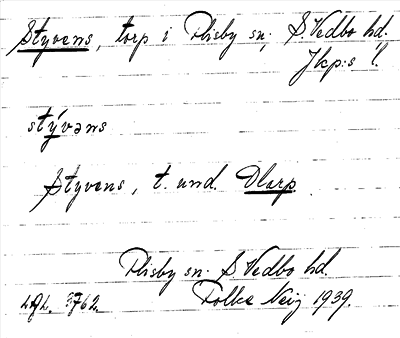 Styvens, torp i Flisby sn; S. Vedbo hd.
Jkp:s l.
stývəns
Styvens, t. und. Olarp.
Flisby sn. S Vedbo hd.
Folke Neij 1939.
3762.